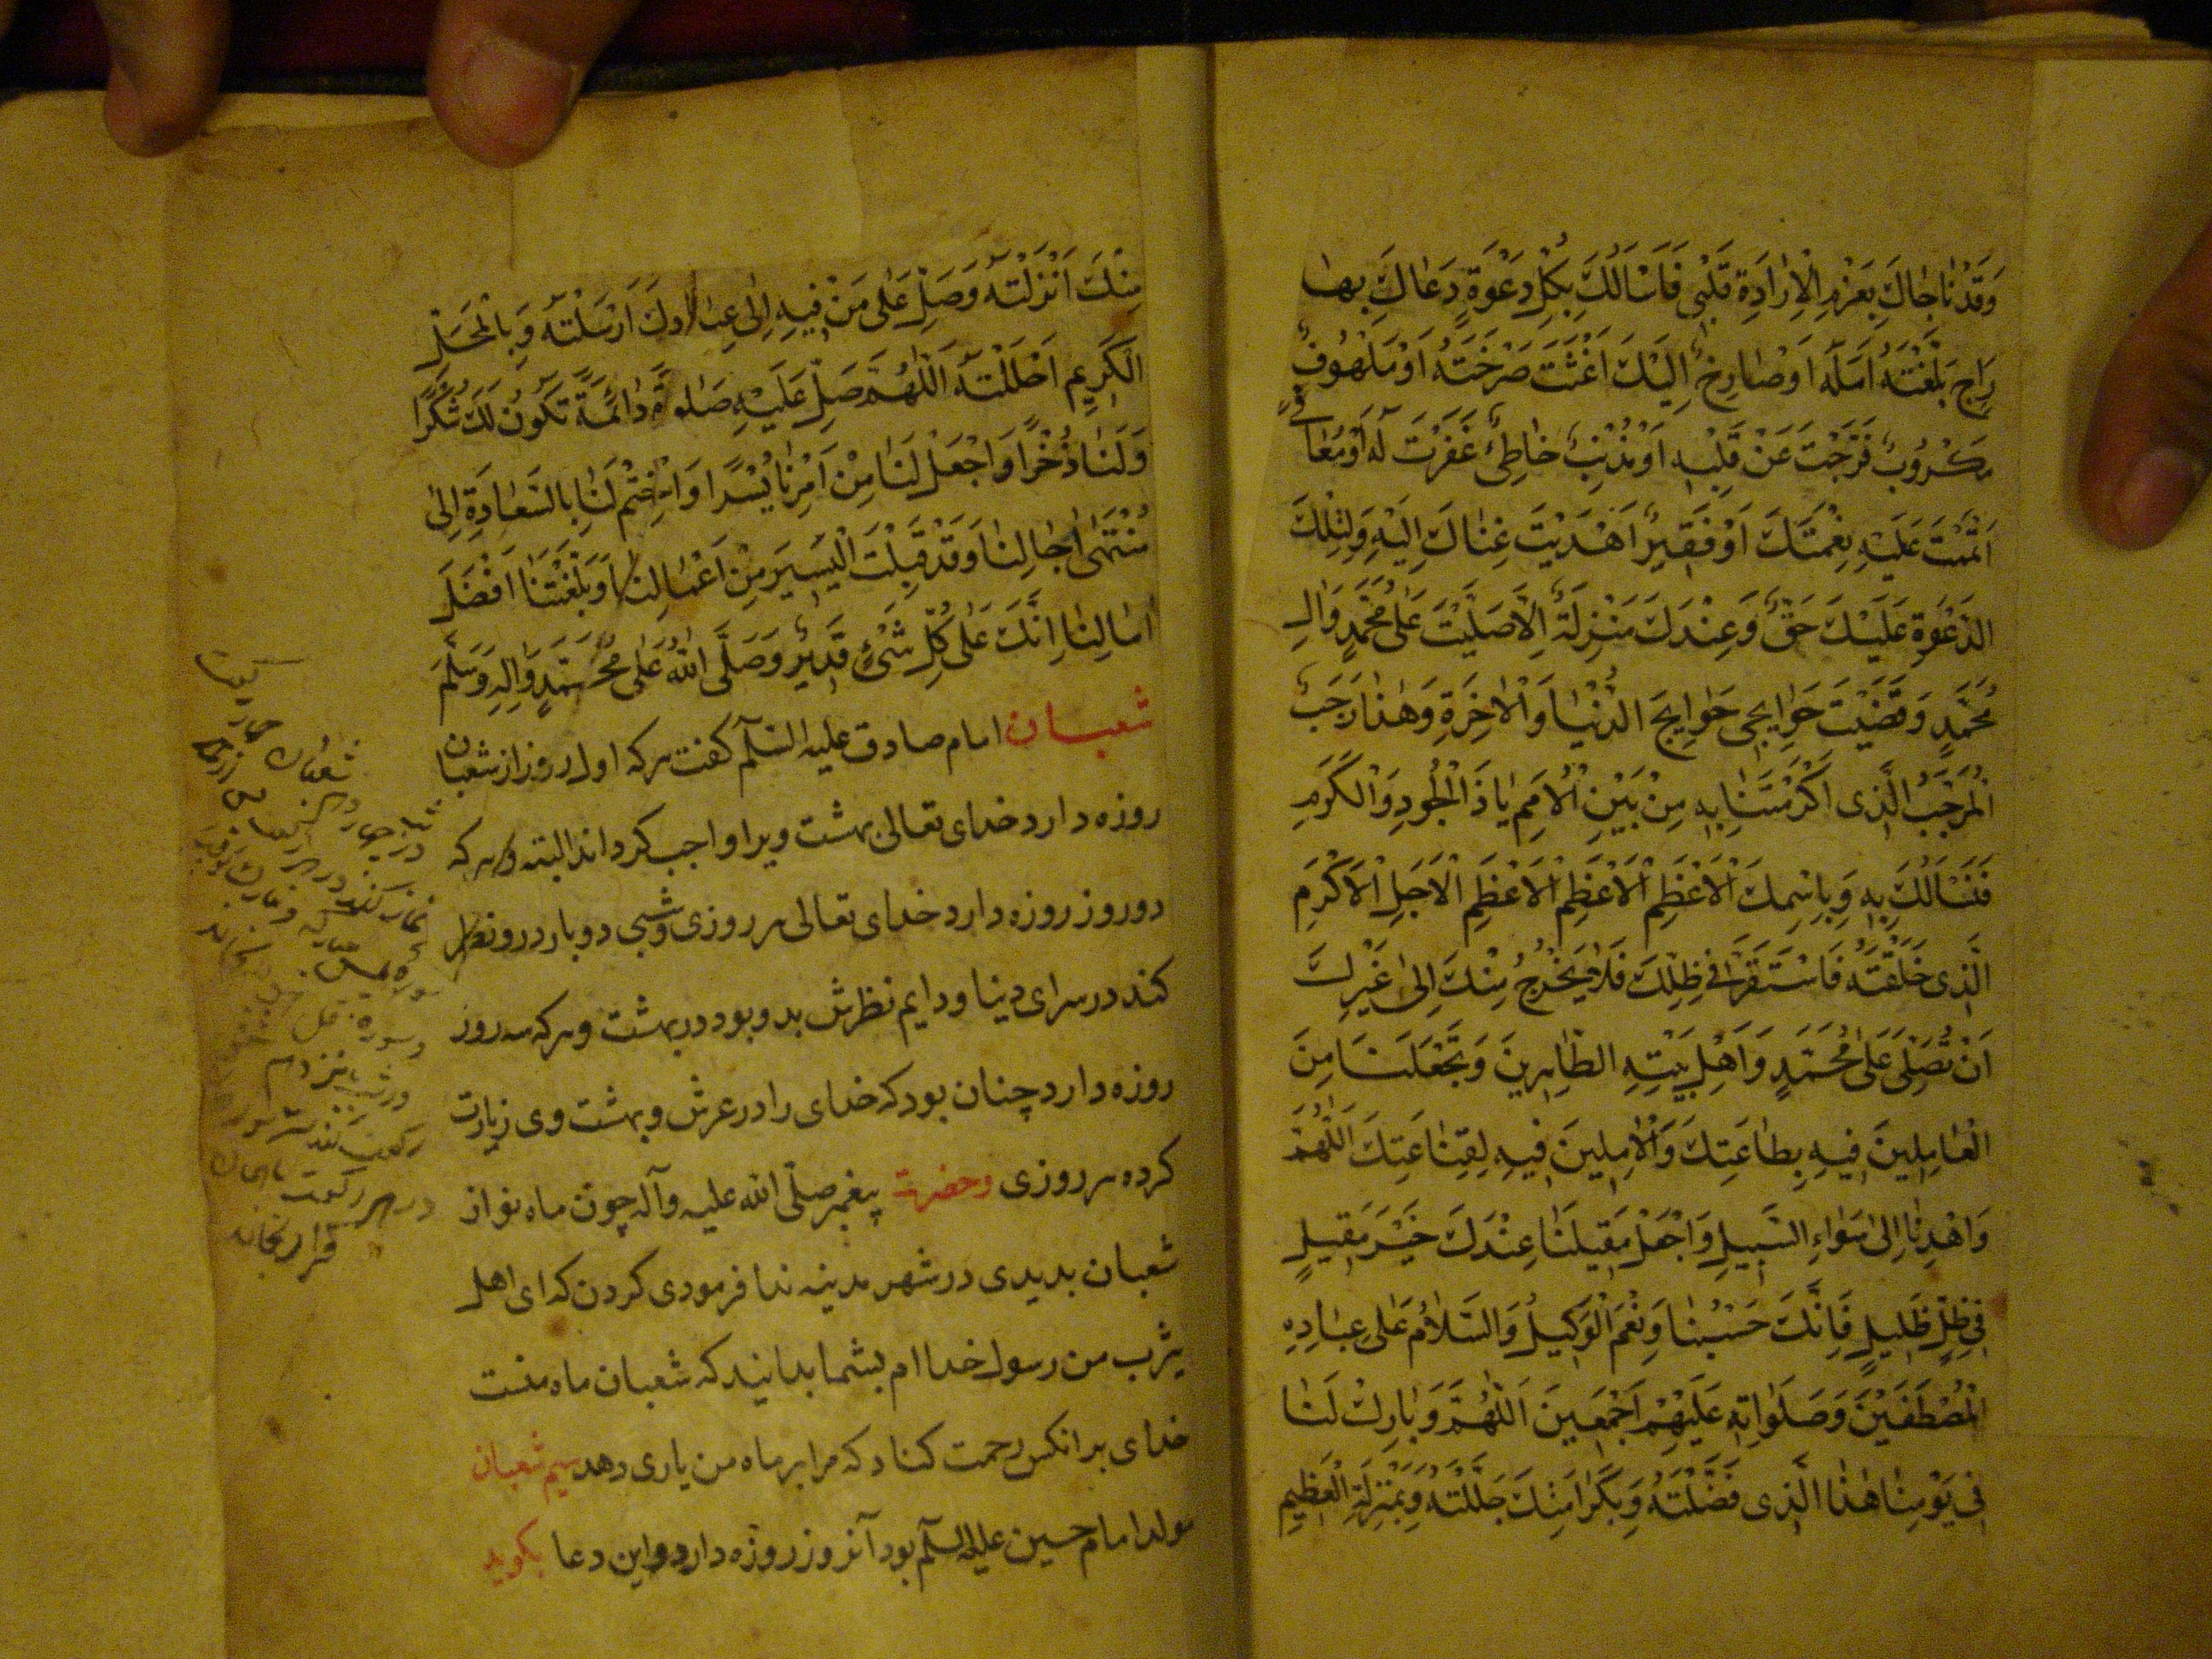 وَقَدْ نٰاجٰاكَ بِعَزْمِ الْاِرٰادَةِ قَلْبِى فَاَسْاَلُكَ بِكُلِّ دَعْوَةٍ دَعٰاكَ بِهٰا
رٰاجٍ بَلَّغْتَهُ اَمَلَهُ اَوْ صٰارِخٍ اِلَيْكَ اَغَثْتَ صَرْخَتَهُ اَوْ مَلْهُوفٍ
مَكْرُوبٍ فَرَّجْتَ عَنْ قَلْبِهِ اَوْ مُذْنِبٍ خٰاطِئٍ غَفَرْتَ لَهُ اَوْ مُعٰافًى
اَتْمَمْتَ عَلَيْهِ نِعْمَتَكَ اَوْ فَقِيرٍ اَهْدَيْتَ غِنٰاكَ اِلَيْهِ وَلِتِلْكَ
الدَّعْوَةِ عَلَيْكَ حَقٌّ وَعِنْدَكَ مَنْزِلَةٌ اِلَّا صَلَّيْتَ عَلٰى مُحَمَّدٍ وَاٰلِ
مُحَمَّدٍ وَقَضَيْتَ حَوٰايِجِى حَوٰايِجَ الدُّنْيٰا وَالْاٰخِرَةِ وَهٰذٰا رَجَبٌ
الْمُرَجَّبُ الَّذِى اَكْرَمْتَنٰا بِهِ مِنْ بَيْنِ الْاُمَمِ يٰا ذَا الْجُودِ وَالْكَرَمِ
فَنَسْاَلُكَ بِهِ وَبِاسْمِكَ الْاَعْظَمِ الْاَعْظَمِ الْاَعْظَمِ الْاَجَلِّ الْاَكْرَمِ
الَّذِى خَلَقْتَهُ فَاسْتَقَرَّ فِى ظِلِّكَ فَلٰا يَخْرُجُ مِنْكَ اِلٰى غَيْرِكَ
اَنْ تُصَلِّىَ عَلٰى مُحَمَّدٍ وَاَهْلِ بَيْتِهِ الطّٰاهِرِينَ وَتَجْعَلَنَا مِنَ
الْعٰامِلِينَ فِيهِ بِطٰاعَتِكَ وَالْاٰمِلِينَ فِيهِ لِقِنٰاعَتِكَ اَللّٰهُمَّ
وَاهْدِنٰا اِلٰى سَوٰاءِ السَّبِيلِ وَاجْعَلْ مَقِيلَنٰا عِنْدَكَ خَيْرَ مَقِيلٍ
فِى ظِلٍّ ظَلِيلٍ فَاِنَّكَ حَسْبُنٰا وَنِعْمَ الْوَكِيلُ وَالسَّلٰامُ عَلٰى عِبٰادِهِ
الْمُصْطَفَيْنَ وَصَلَوٰاتُهُ عَلَيْهِمْ اَجْمَعِينَ اَللّٰهُمَّ وَبٰارِكْ لَنٰا
فِى يَوْمِنٰا هٰذَا الَّذِى فَضَّلْتَهُ وَبِكَرٰامَتِكَ جَلَّلْتَهُ وَبِمَنْزِلِ الْعَظِيمِ
مِنْكَ اَنْزَلْتَهُ وَصَلِّ عَلٰى مَنْ فِيهِ اِلٰى عِبٰادِكَ اَرْسَلْتَهُ وَبِالْمَحَلِّ
الْكَرِيمِ اَحْلَلْتَهُ اَللّٰهُمَّ صَلِّ عَلَيْهِ صَلٰوةً دٰائِمَةً تَكُونُ لَكَ شُكْرًا
وَلَنٰا ذُخْرًا وَاجْعَلْ لَنٰا مِنْ اَمْرِنٰا يُسْرًا وَاخْتِمْ لَنٰا بِالسَّعٰادَةِ اِلٰى
مُنْتَهٰى اٰجٰالِنٰا وَقَدْ قَبِلْتَ الْيَسِيرَ مِنْ اَعْمٰالِنٰا وَبَلَّغْتَنٰا اَفْضَلَ
اٰمٰالِنٰا اِنَّكَ عَلٰى كُلِّ شَىْءٍ قَدِيرٌ وَصَلَّى اللّٰهُ عَلٰى مُحَمَّدٍ وَاٰلِهِ وَسَلَّمَ
شعبان امام صادق عليه السلم كفت هركه اول روز از شعبان
روزه دارد خداى تعالى بهشت ويرا واجب كرداند البته و هركه
دو روز روزه دارد خداى تعالى هر روزى و شبى دو بار درو نظر
كند در سراى دنيا و دايم نظرش بدو بود در بهشت و هركه سه روز
روزه دارد چنان بود كه خداى را در عرش و بهشت وى زيارت
كرده هر روزى و حضرة پيغمبر صلّى الله عليه وآله چون ماه نو از
شعبان بديدى در شهر مدينه ندا فرمودى كردن كه اى اهل
يثرب من رسول خداام بشما بدانيد كه شعبان ماه منست
خداى بر انكس رحمت كناد كه مرا بر ماه من يارى دهد سيم شعبان
مولد امام حسين عليه السلم بود آنروز روزه دارد و اين دعا بكويد
شعبان
نماز كند در هر
در هر ركعت
قرا بخاند